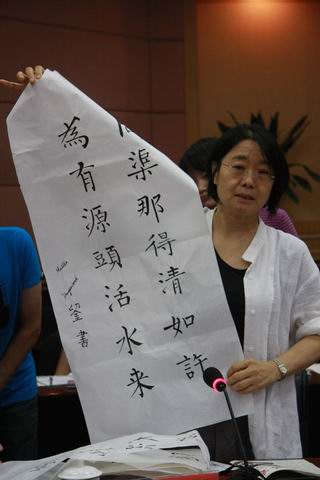 渠那得清如許
為有源頭活水来
書